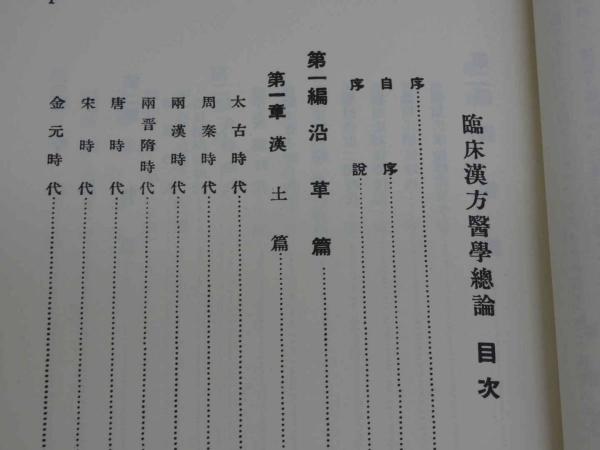 臨床漢方醫學總論 目次
序
自序
序説
第一編 沿革篇
第一章 漢土篇
太古時代
周秦時代
兩漢時代
兩晋隋時代
唐時代
宋時代
金元時代